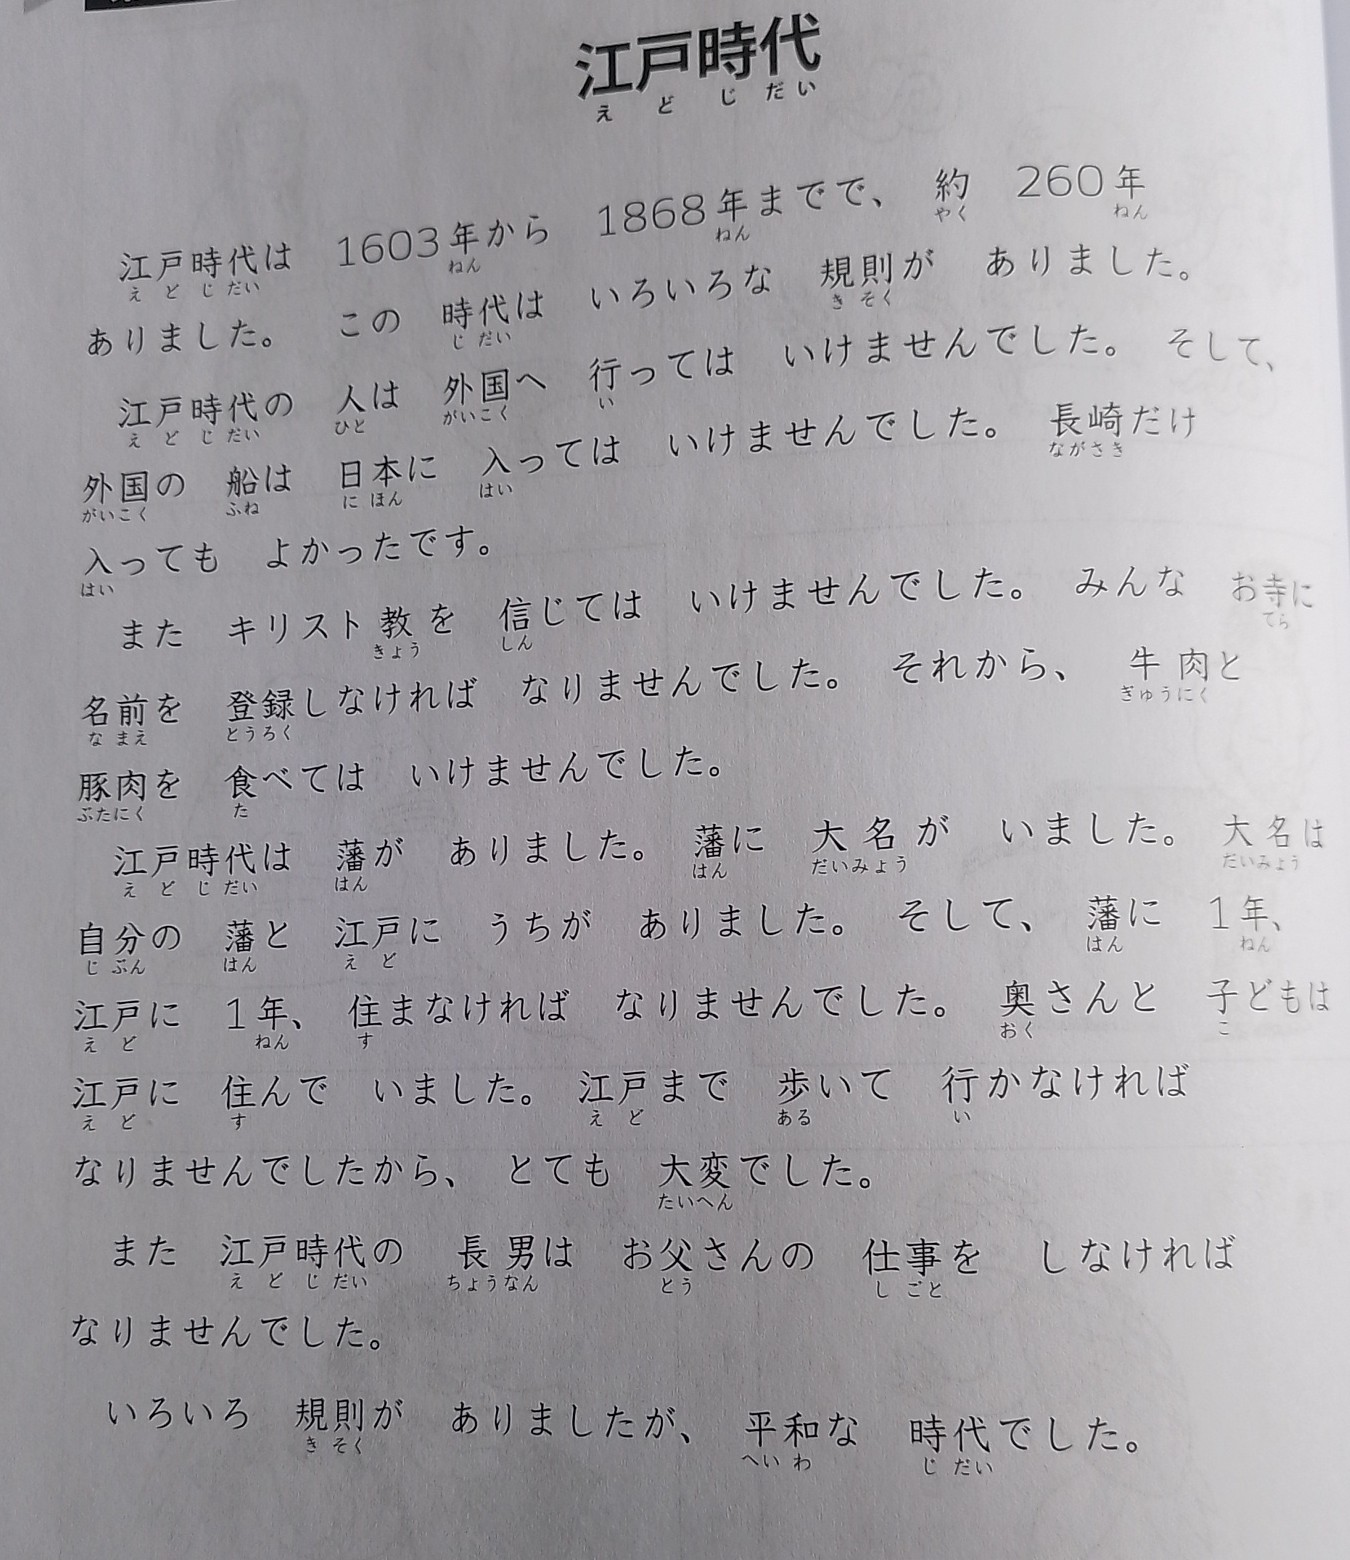 江戸時代
えどじだい
江戸時代は 1603年から 1868年までで、 約 260年
えどじだい ねん ねん やく ねん
ありました。 この 時代は いろいろな 規則が ありました。
じだい きそく
江戸時代の 人は 外国へ 行っては いけませんでした。 そして、
えどじだい ひと がいこく い
外国の 船は 日本に 入っては いけませんでした。 長崎だけ
がいこく ふね にほん はい ながさき
入っても よかったです。
はい
また キリスト教を 信じては いけませんでした。 みんな お寺に
きょう しん てら
名前を 登録しなければ なりませんでした。 それから、 牛肉と
なまえ とうろく ぎゅうにく
豚肉を 食べては いけませんでした。
ぶたにく た
江戸時代は 藩が ありました。 藩に 大名が いました。 大名は
えどじだい はん はん だいみょう だいみょう
自分の 藩と 江戸に うちが ありました。 そして、 藩に 1年、
じぶん はん えど はん ねん
江戸に 1年、 住まなければ なりませんでした。 奥さんと 子どもは
えど ねん す おく こ
江戸に 住んで いました。 江戸まで 歩いて 行かなければ
えど す えど ある い
なりませんでしたから、 とても 大変でした。
たいへん
また 江戸時代の 長男は お父さんの 仕事を しなければ
えどじだい ちょうなん とう しごと
なりませんでした。
いろいろ 規則が ありましたが、 平和な 時代でした。
きそく へいわ じだい